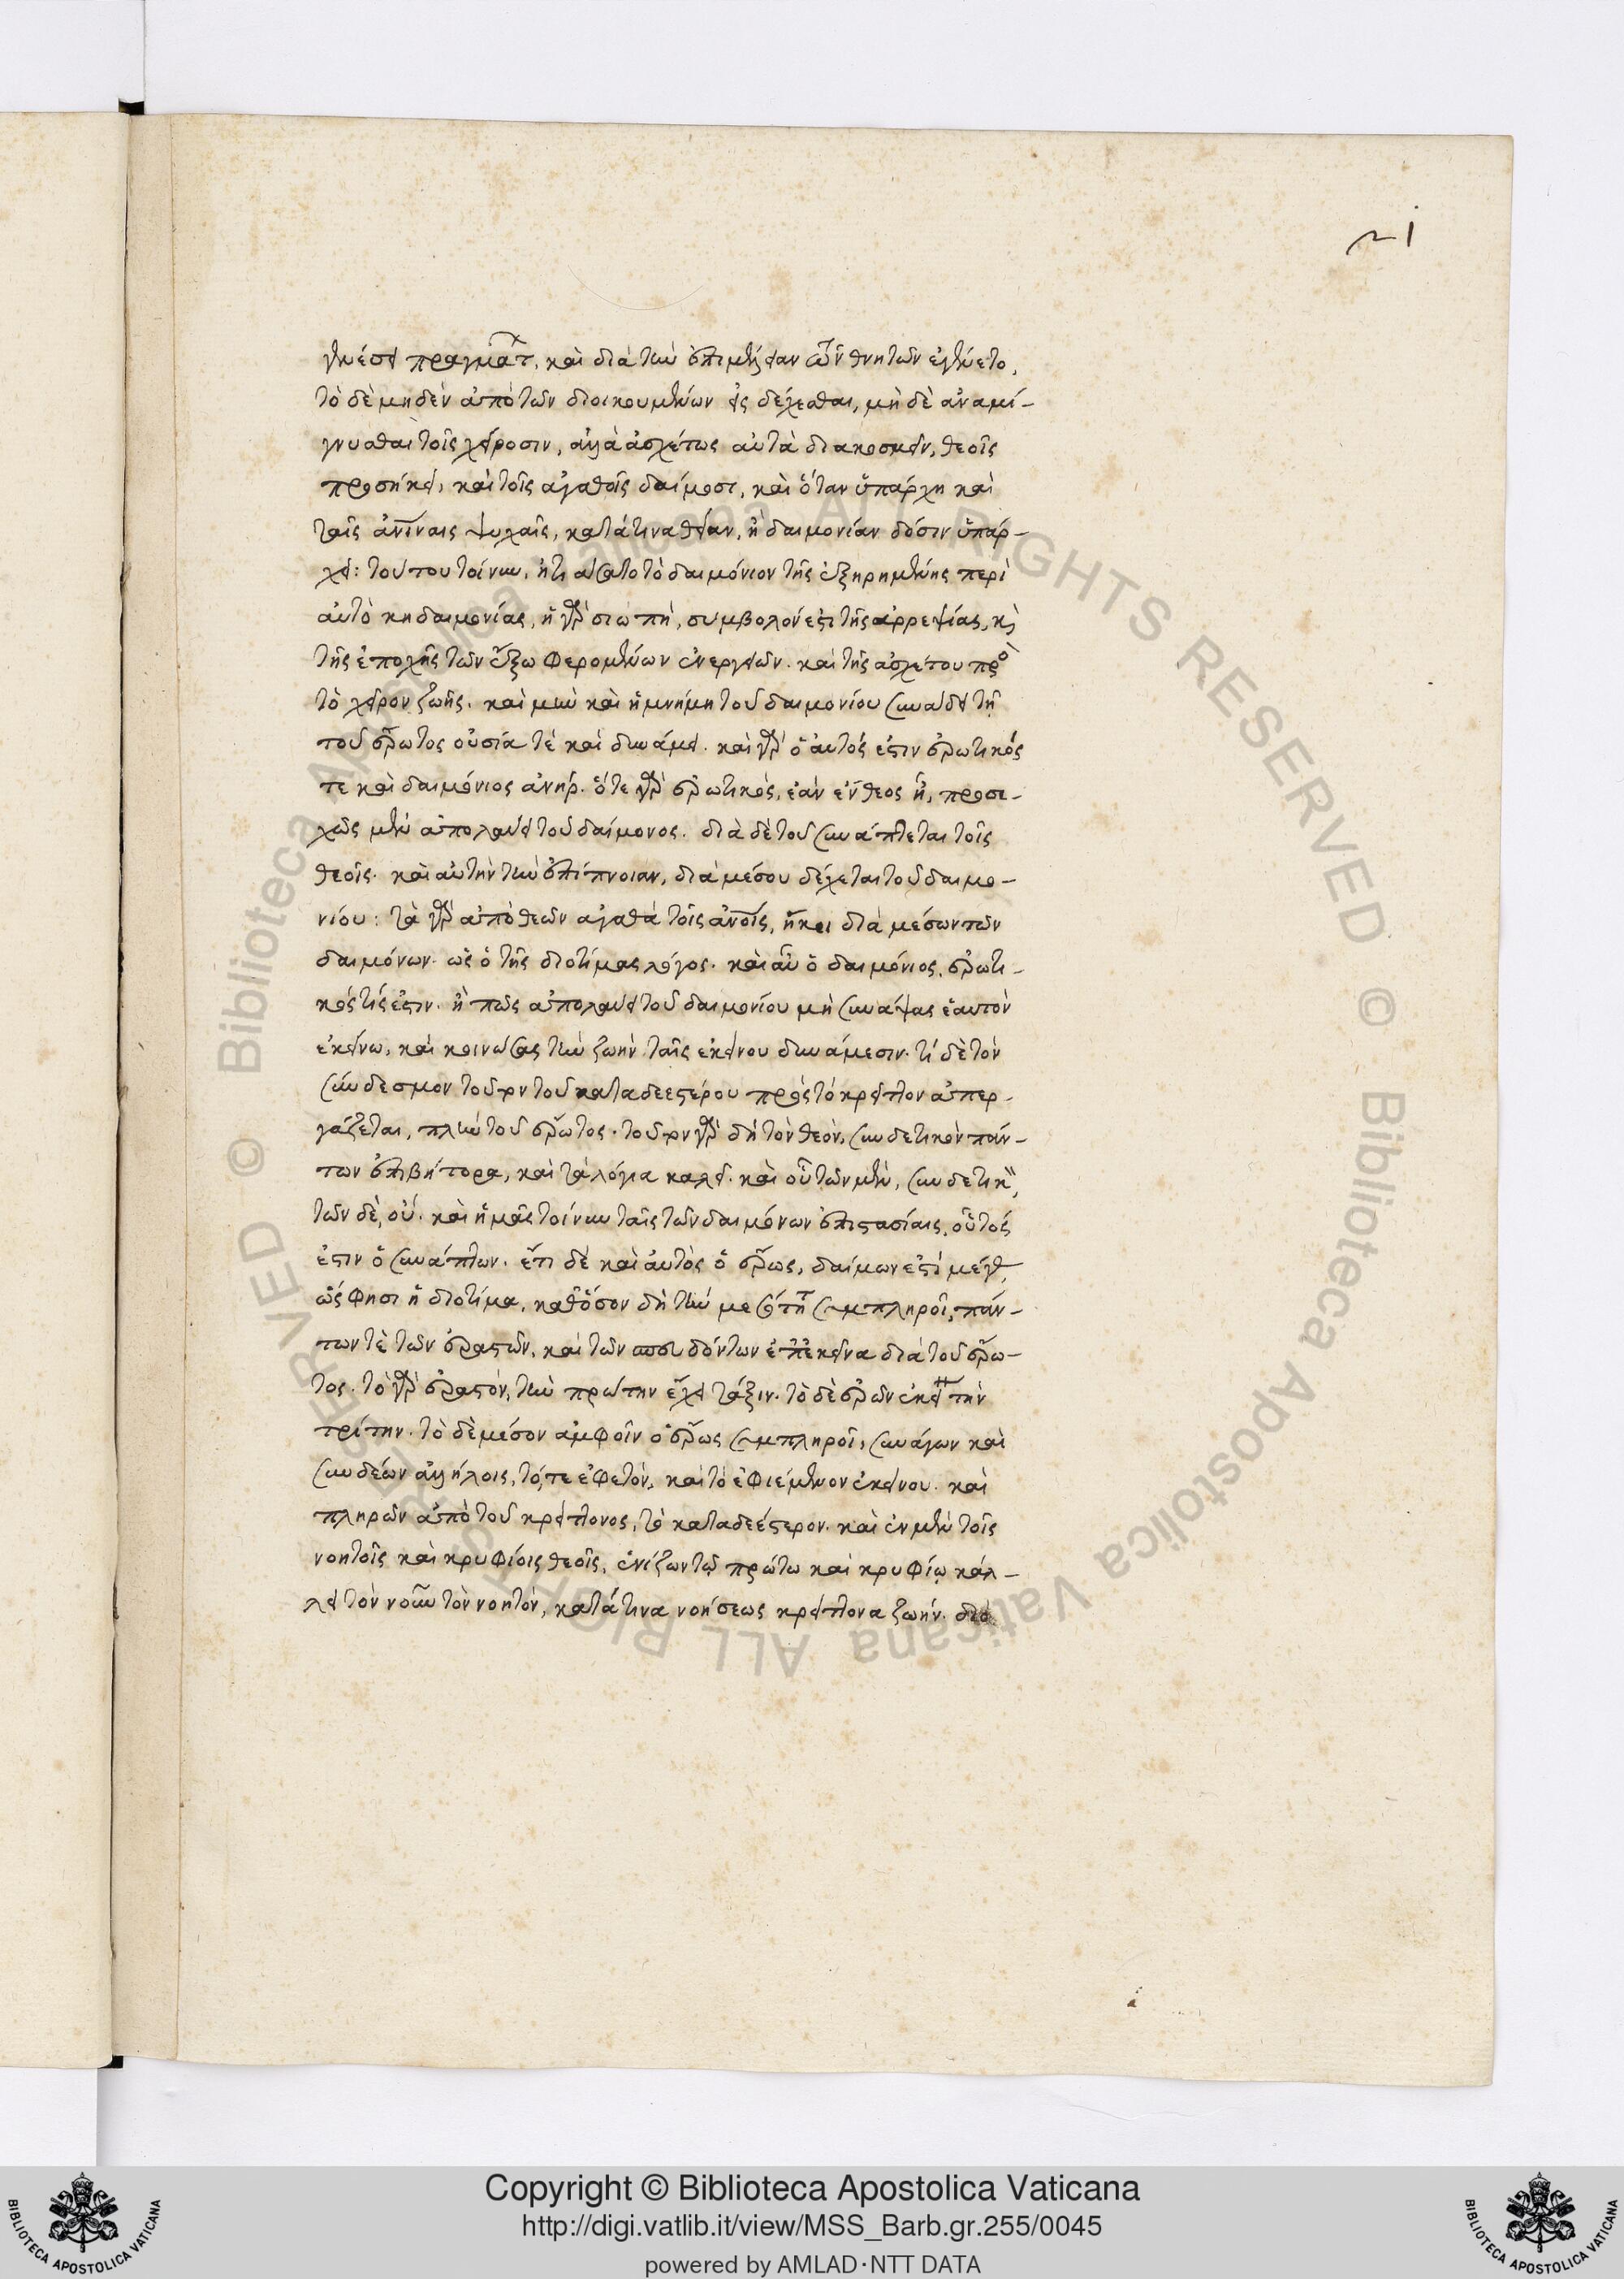 21
γενέσει πραγμάτ, καὶ διὰ τὴν ἐπιμέλειαν τῶν θνητῶν ἐγένετο,
τὸ δὲ μηδὲν ἀπὸ τῶν διοικουμένων εἰς δέχεσθαι, μὴ δὲ ἀναμί-
γνυσθαι τοῖς χείροσιν, ἀλλὰ ἀσχέτως αὐτὰ διακοσμεῖν, θεοῖς
προσήκει, καὶ τοῖς ἀγαθοῖς δαίμοσι, καὶ ὅταν ὕπάρχη καὶ
ταῖς ἀνίναις ψυχαῖς, κατά τινα θείαν, ἢ δαιμονίαν δόσιν ὕπάρ-
χει: τούτου τοίνυν, ᾐτιάσατο τὸ δαιμόνιον τῆς ἐξηρημένης περὶ
αὐτὸ κηδαιμονίας, ἡ γὰρ σιωπὴ, συμβολόν ἐστι τῆς ἀρρεψίας, κ
τῆς ἐποχῆς τῶν ἔξω φερομένων ἐνεργειῶν. καὶ τῆς ἀσχέτου πρὸ
τὸ χεῖρον ζωῆς. καὶ μὴν καὶ ἡ μνήμη τοῦ δαιμονίου συνάδει τῇ
τοῦ ἔρωτος οὐσία τὲ καὶ δυνάμει. καὶ γὰρ ὁ αὐτός ἐστιν ἐρωτικός
τε καὶ δαιμόνιος ἀνήρ. ὅτε γὰρ ἐρωτικὸς, ἐάν ἔνθεος ᾖ, προσε-
χῶς μὲν ἀπολαύει τοῦ δαίμονος. διὰ δὲ τοῦ συνάπτεται τοῖς
θεοῖς. καὶ αὐτὴν τὴν ἐπίπνοιαν, διὰ μέσου δέχεται τοῦ δαιμο-
νίου: τὰ γὰρ ἀπὸ θεῶν ἀγαθὰ τοῖς ἀνοῖς, ἥκει διὰ μέσων τῶν
δαιμόνων. ὡς ὁ τῆς διοτίμας λόγος. καὶ αὖ ὁ δαιμόνιος, ἐρωτι-
κός τίς ἐστιν. ἢ πῶς ἀπολαύει τοῦ δαιμονίου μὴ συνάψας ἑαυτὸν
ἐκείνω, καὶ κοινώσας τὴν ζωὴν ταῖς ἐκείνου δυνάμεσιν. τί δὲ τὸν
σύνδεσμον τοῦτον τοῦ καταδεεστέρου πρὸς τὸ κρεῖττον ἀπερ-
γάζεται, πλὴν τοῦ ἔρωτος. τοῦτον γὰρ δὴ τὸν θεὸν, συνδετικὸν πάν-
των ἐπιβήτορα, καὶ τὰ λόγια καλεῖ. καὶ οὐ τῶν μὲν, συνδετικ,
τῶν δὲ, οὔ. καὶ ἡμᾶς τοίνυν ταῖς τῶν δαιμόνων ἐπιστασίαις, οὗτός
ἐστιν ὁ συνάπτων. ἔτι δὲ καὶ αὐτὸς ὁ ἔρως, δαίμων ἐστὶ μέγ,
ὥς φησι ἡ διοτίμα, καθόσον δὴ τὴν μεσότητ συμπληροῖ, πάν-
των τὲ τῶν ἐραστῶν, καὶ τῶν σπευδόντων ἐπ ἐκεῖνα διὰ τοῦ ἔρω-
τος. τὸ γὰρ ἐραστὸν, τὴν πρώτην ἔχει τάξιν. τὸ δὲ ἐρῶν ἐκεῖ τὴν
τρίτην. τὸ δὲ μέσον ἀμφοῖν ὁ ἔρως συμπληροῖ, συνάγων καὶ
συνδέων ἀλλήλοις, τό, τε ἐφετὸν, καὶ τὸ ἐφιέμενον ἐκείνου. καὶ
πληρῶν ἀπὸ τοῦ κρείττονος, τὸ καταδεέστερον. καὶ ἐν μὲν τοῖς
νοητοῖς καὶ κρυφίοις θεοῖς, ἑνίζων τῷ πρώτω καὶ κρυφίῳ κάλ-
λει τὸν νοῦν τὸν νοητὸν, κατά τινα νοήσεως κρείττονα ζωήν. διὸ
Copyright © Biblioteca Apostolica Vaticana
http://digi.vatlib.it/view/MSS_Barb.gr.255/0045
powered by AMLAD·NTT DATA
BIBLIOTECA APOSTOLICA VATICANA
BIBLIOTECA APOSTOLICA VATICANA
© Biblioteca Apostolica Vaticana ALL RIGHTS RESERVED © Biblioteca Apostolica Vaticana ALL RIGHTS RESERVED